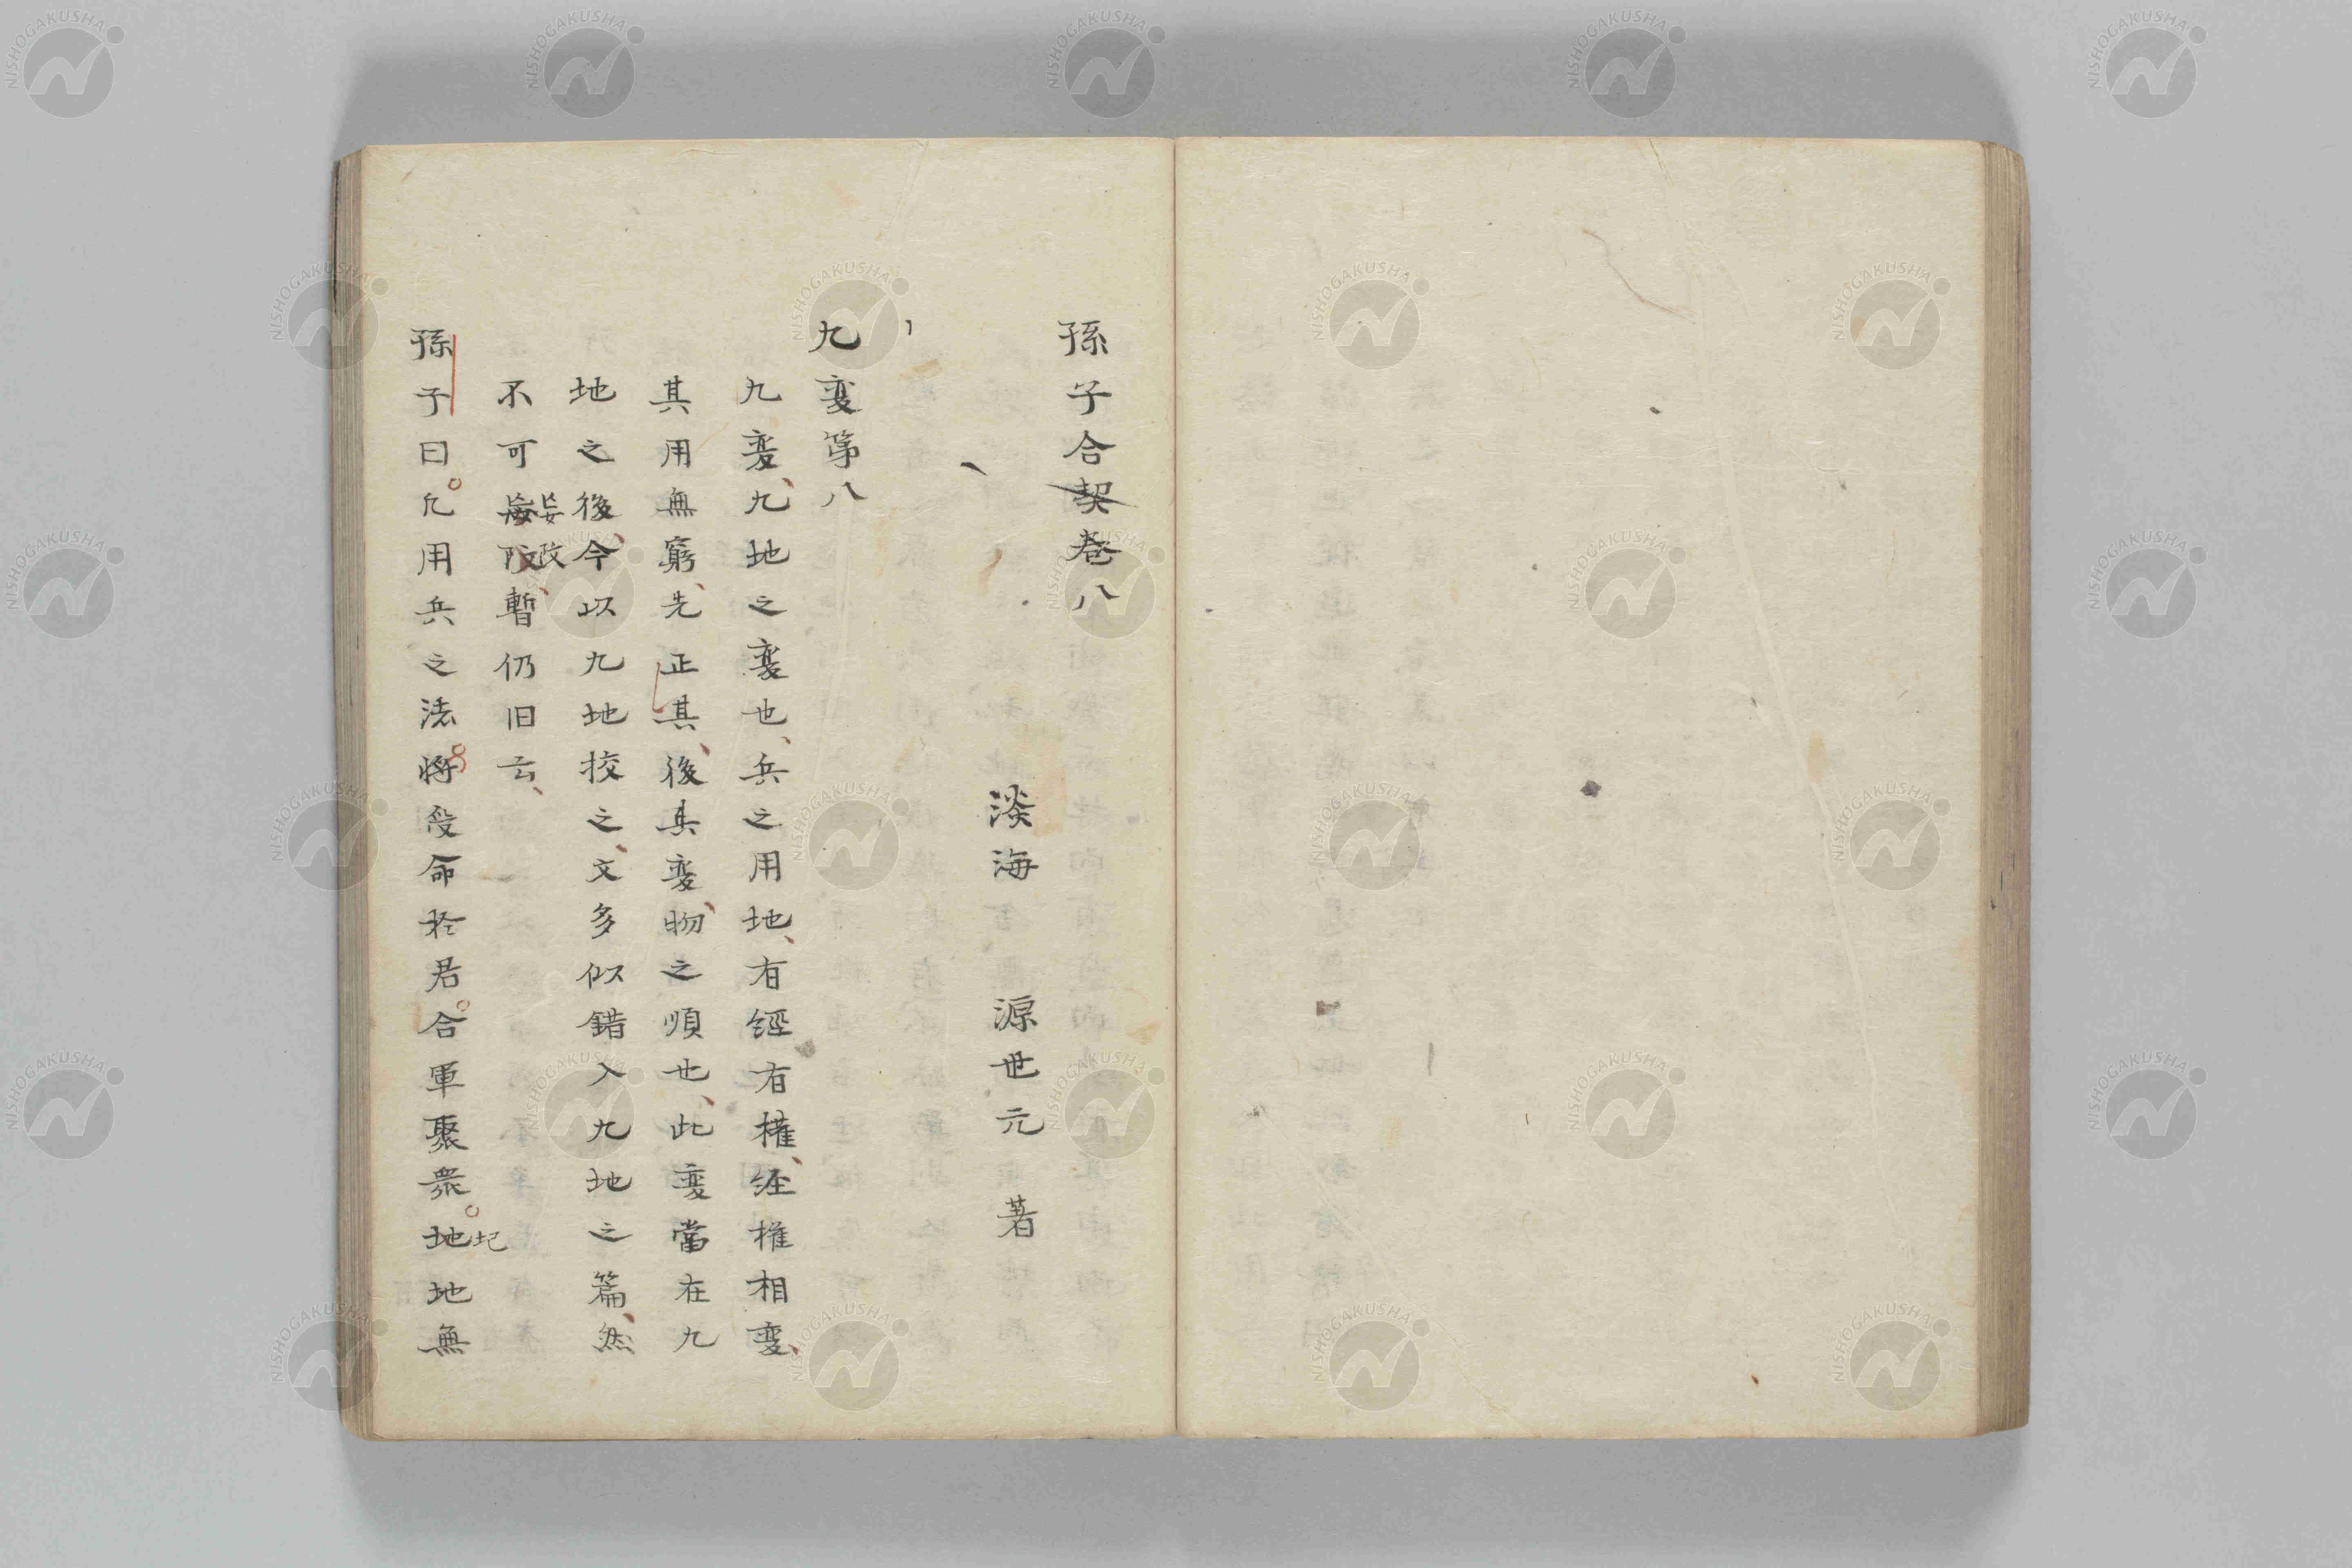 孫子合契巻八
淡海 源世元 著
九変第八
九変、九地之変也、兵之用地、有経有権、経権相変、
其用無窮、先正其、後其変、物之順也、此変當在九
地之後、今以九地挍之、文多似錯入九地之篇、然
不可妄改、暫仍旧云、
孫子曰。凡用兵之法。將受命於君。合軍聚衆。圮地無
NISHOGAKUSHA